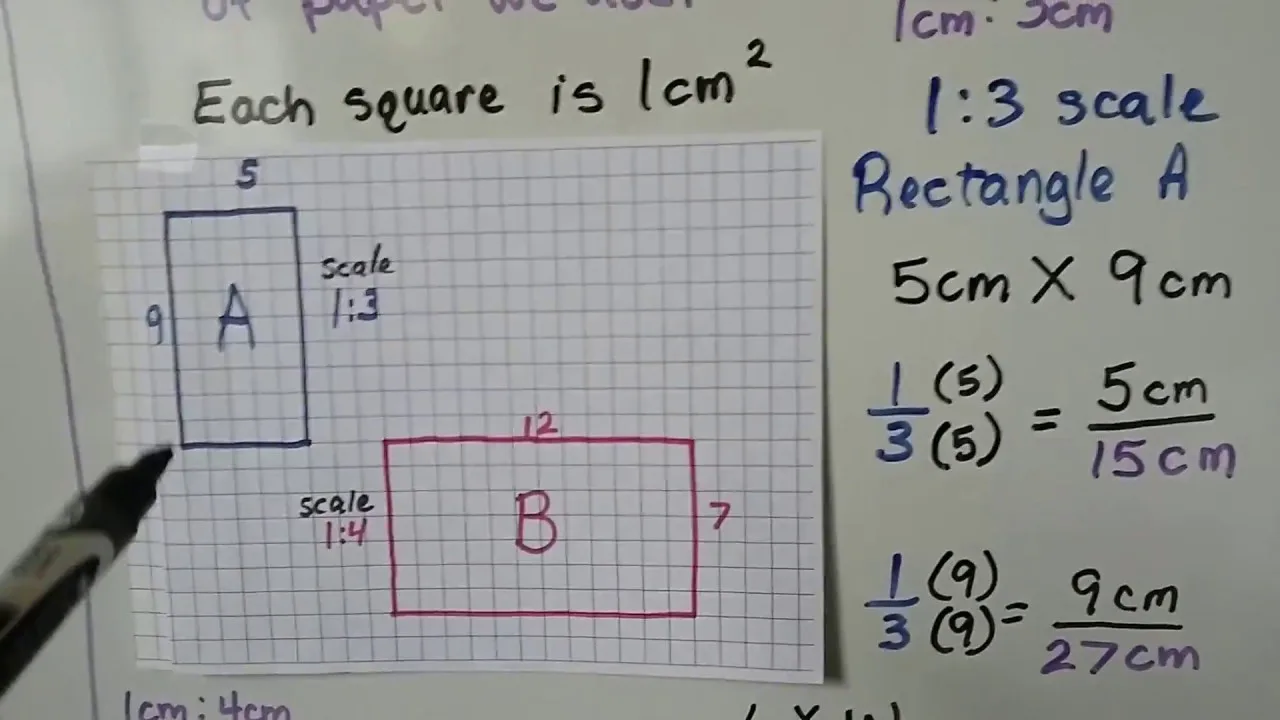 of paper we use.
1cm: 3cm
Each square is 1cm²
1:3 scale
Rectangle A
5cm X 9cm
5
9
A
scale
1:3
12
scale
1:4
B
7
1 (5) = 5cm
3 (5) 15cm
1 (9) = 9cm
3 (9) 27cm
1cm: 4cm